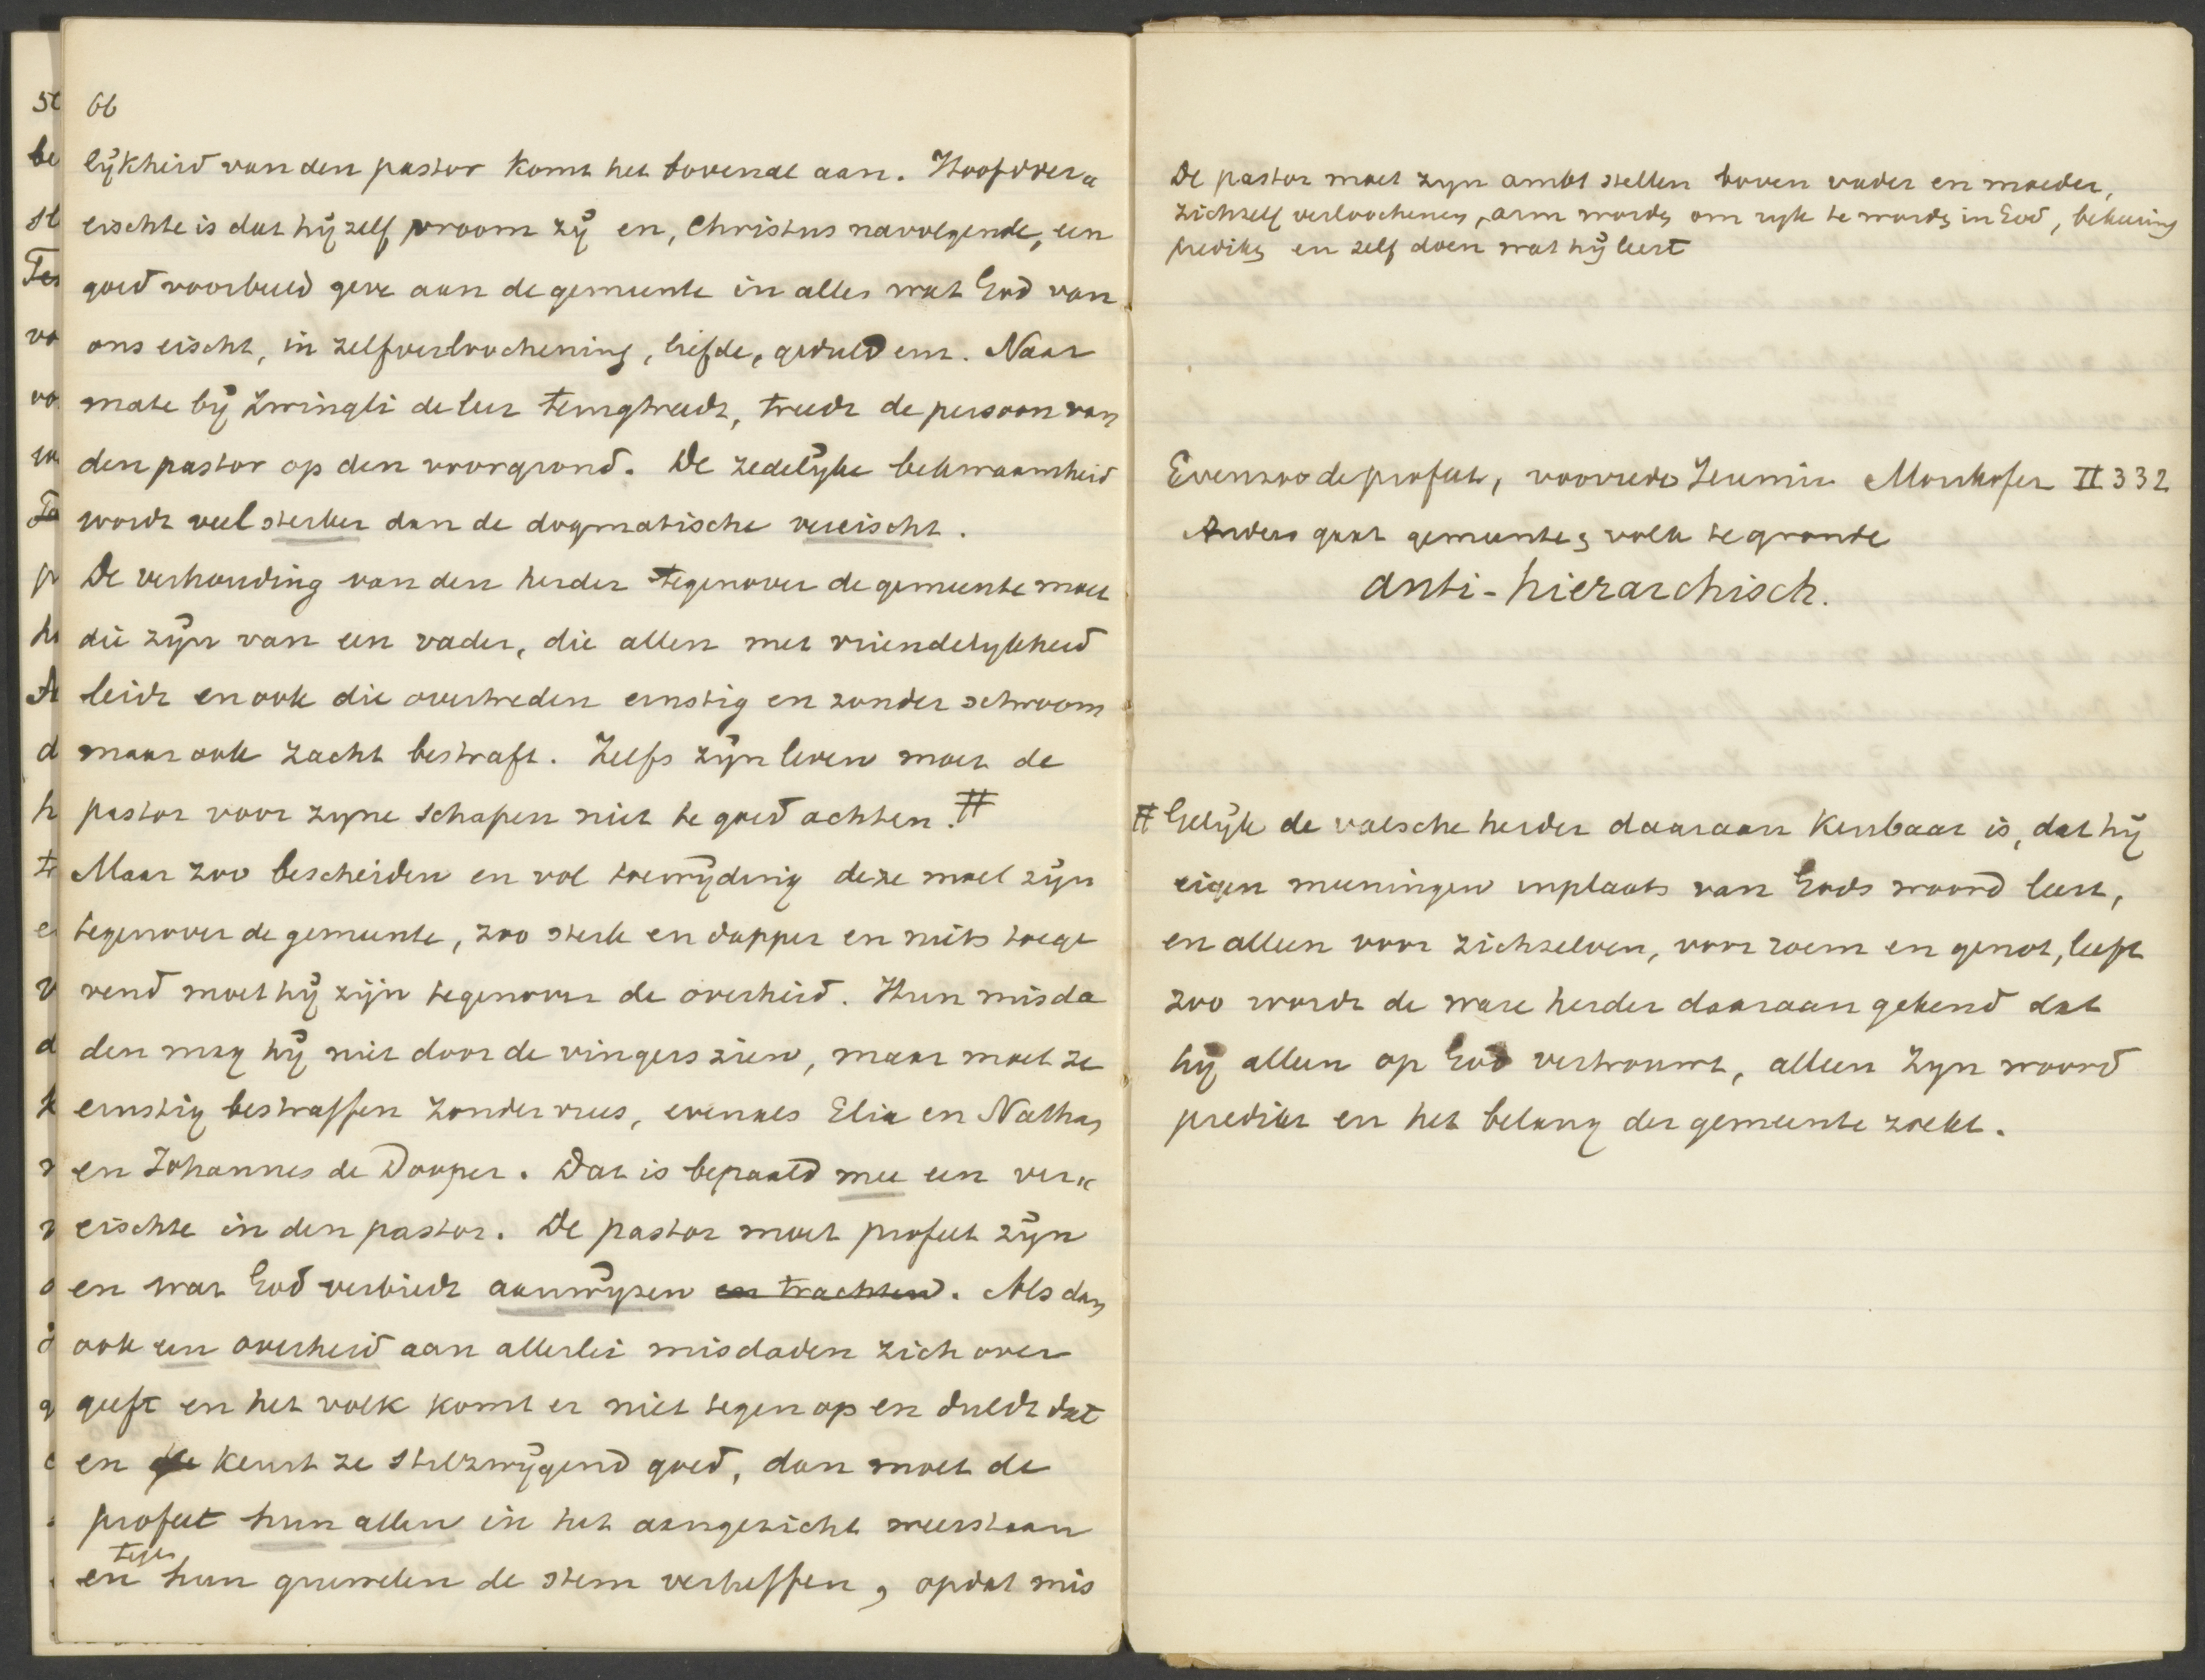 66
lijkheid van den pastor komt het bovenal aan. Hoofdver„
eischte is dat hij zelf vroom zij en, Christus navolgende, een
goed voorbeeld geve aan de gemeente in alles wat God van
ons eischt, in zelfverloochening, liefde, geduld enz. Naar
mate bij Zwingli de leer terugtreedt, treedt de persoon van
den pastor op den voorgrond. De zedelijke bekwaamheid
wordt veel sterker dan de dogmatische vereischt.
De verhouding van den herder tegenover de gemeente moet
die zijn van een vader, die allen met vriendelijkheid
leidt en ook die overtreden ernstig en zonder schroom
maar ook zacht bestraft. Zelfs zijn leven moet de
pastor voor zijne schapen niet te goed achten. #
Maar zoo bescheiden en vol toewijding deze moet zijn
tegenover de gemeente, zoo sterk en dapper en niets toege
vend moet hij zijn tegenover de overheid. Hun misda
den mag hij niet door de vingers zien, maar moet ze
ernstig bestraffen zonder vrees, evenals Elia en Nathan
en Johannes de Dooper. Dat is bepaald mee een ver„
eischte in den pastor. De pastor moet profeet zijn
en wat God verbiedt aanwijzen en trachten. Als dan
ook een overheid aan allerlei misdaden zich over
geeft en het volk komt er niet tegen op en duldt dat
en keurt ze stilzwijgend goed, dan moet de
profeet hun allen in het aangezicht weerstaan
en tegen hun gruwelen de stem verheffen, opdat mis
De pastor moet zijn ambt stellen boven vader en moeder,
zichzelf verloochenen, arm worden om rijk te worden in God, bekeering
prediken en zelf doen wat hij leert
Evenzoo de profeet, voorrede Jeremia Morikofer II 332
Anders gaat gemeente en volk te gronde
anti-hierarchisch.
# Gelijk de valsche herder daaraan kenbaar is, dat hij
eigen meeningen inplaats van Gods woord leert,
en alleen voor zichzelven, voor roem en genot, leeft
zoo wordt de ware herder daaraan gekend dat
hij alleen op God vertrouwt, alleen Zijn woord
predikt en het belang der gemeente zoekt.